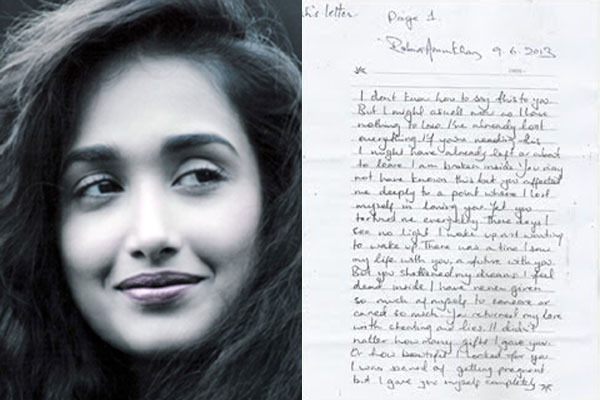 his letter Page 1
9.6.2013
I don't know how to say this to you
But I might aswell now as I have
nothing to lose. I've already lost
everything. If you're reading this
I might have already left or about
to leave. I am broken inside. You may
not have known this but you affected
me deeply to a point where I lost
myself in loving you. Yet you
tortured me everyday. These days I
see no light I wake up not wanting
to wake up. There was a time I saw
my life with you, a future with you.
But you shattered my dreams. I feel
dead inside. I have never given
so much of myself to someone or
cared so much. You returned my love
with cheating and lies. It didn't
matter how many gifts I gave you.
Or how beautiful I looked for you.
I was scared of getting pregnant
but I gave you myself completely